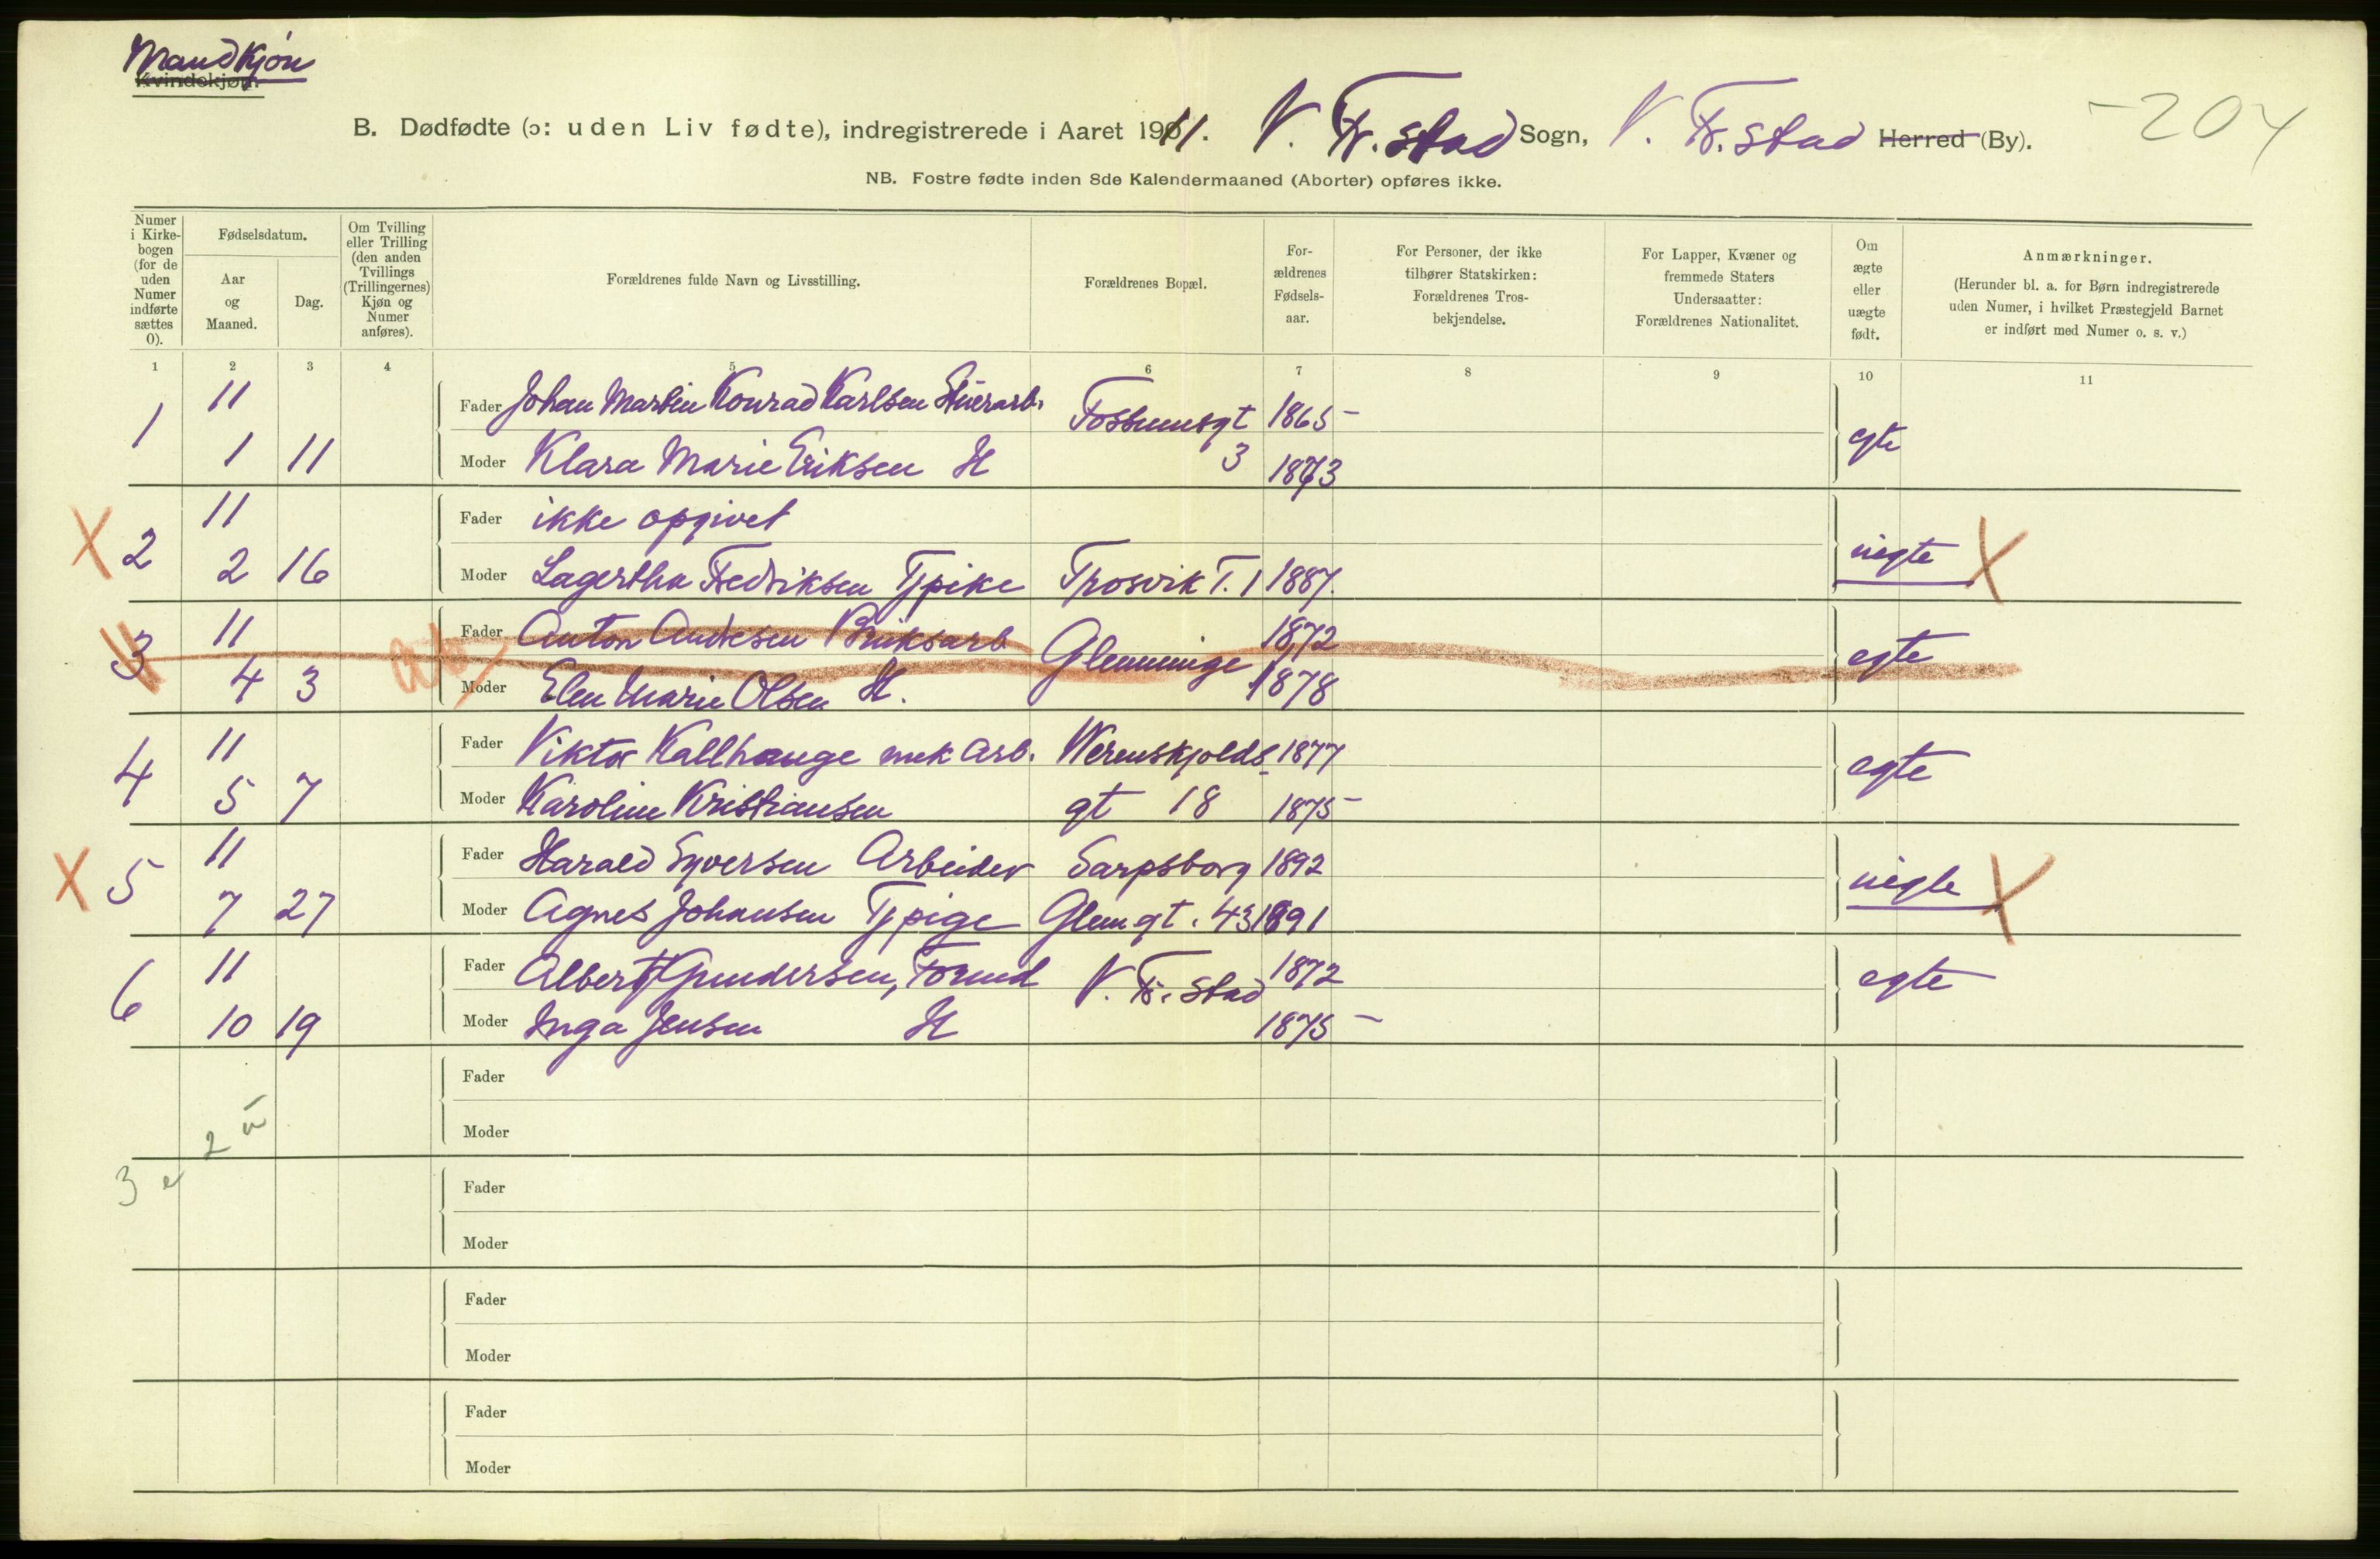 Mandkjøn
Kvindekjøn.
B. Dødfødte (ɔ: uden Liv fødte), indregistrerede i Aaret 1911. V. Fr.stad Sogn, V. Fr.stad Herred (By).
-204
NB. Fostre fødte inden 8de Kalendermaaned (Aborter) opføres ikke.
Numer i Kirkebogen (for de uden Numer indførte sættes 0).
Fødselsdatum.
Aar og Maaned.
Dag.
Om Tvilling eller Trilling (den anden Tvillings (Trillingernes) Kjøn og Numer anføres).
Forældrenes fulde Navn og Livsstilling.
Forældrenes Bopæl.
Forældrenes Fødselsaar.
For Personer, der ikke tilhører Statskirken: Forældrenes Trosbekjendelse.
For Lapper, Kvæner og fremmede Staters Undersaatter: Forældrenes Nationalitet.
Om ægte eller uægte født.
Anmærkninger.
(Herunder bl. a. for Børn indregistrerede uden Numer, i hvilket Præstegjeld Barnet er indført med Numer o. s. v.)
1 2 3 4 5 6 7 8 9 10 11
1 11 Fader Johan Martin Konrad Karlsen Fossumsgt 1865 egte
1 11 Moder Klara Marie Eriksen H 3 1873
X 2 11 Fader ikke opgivet uegte X
2 16 Moder Lagertha Fredriksen Tjpike Trosvik T. 1 1887.
3 11 Fader Anton Andresen Bruksarb Glemminge 1872 egte
4 3 Moder Elen Marie Olsen H. 1878
4 11 Fader Viktor Kallhauge mek arb. Werenskjolds 1877 egte
5 7 Moder Karoline Kristiansen gt 18 1875
X 5 11 Fader Harald Syversen Arbeider Sarpsborg 1892 uegte X
7 27 Moder Agnes Johansen Tjpige Glemgt. 43 1891
6 11 Fader Albert Gundersen, Formd V. Fr.stad 1872 egte
10 19 Moder Inga Jensen H 1875
Fader
Moder
2 u
3 e
Fader
Moder
Fader
Moder
Fader
Moder